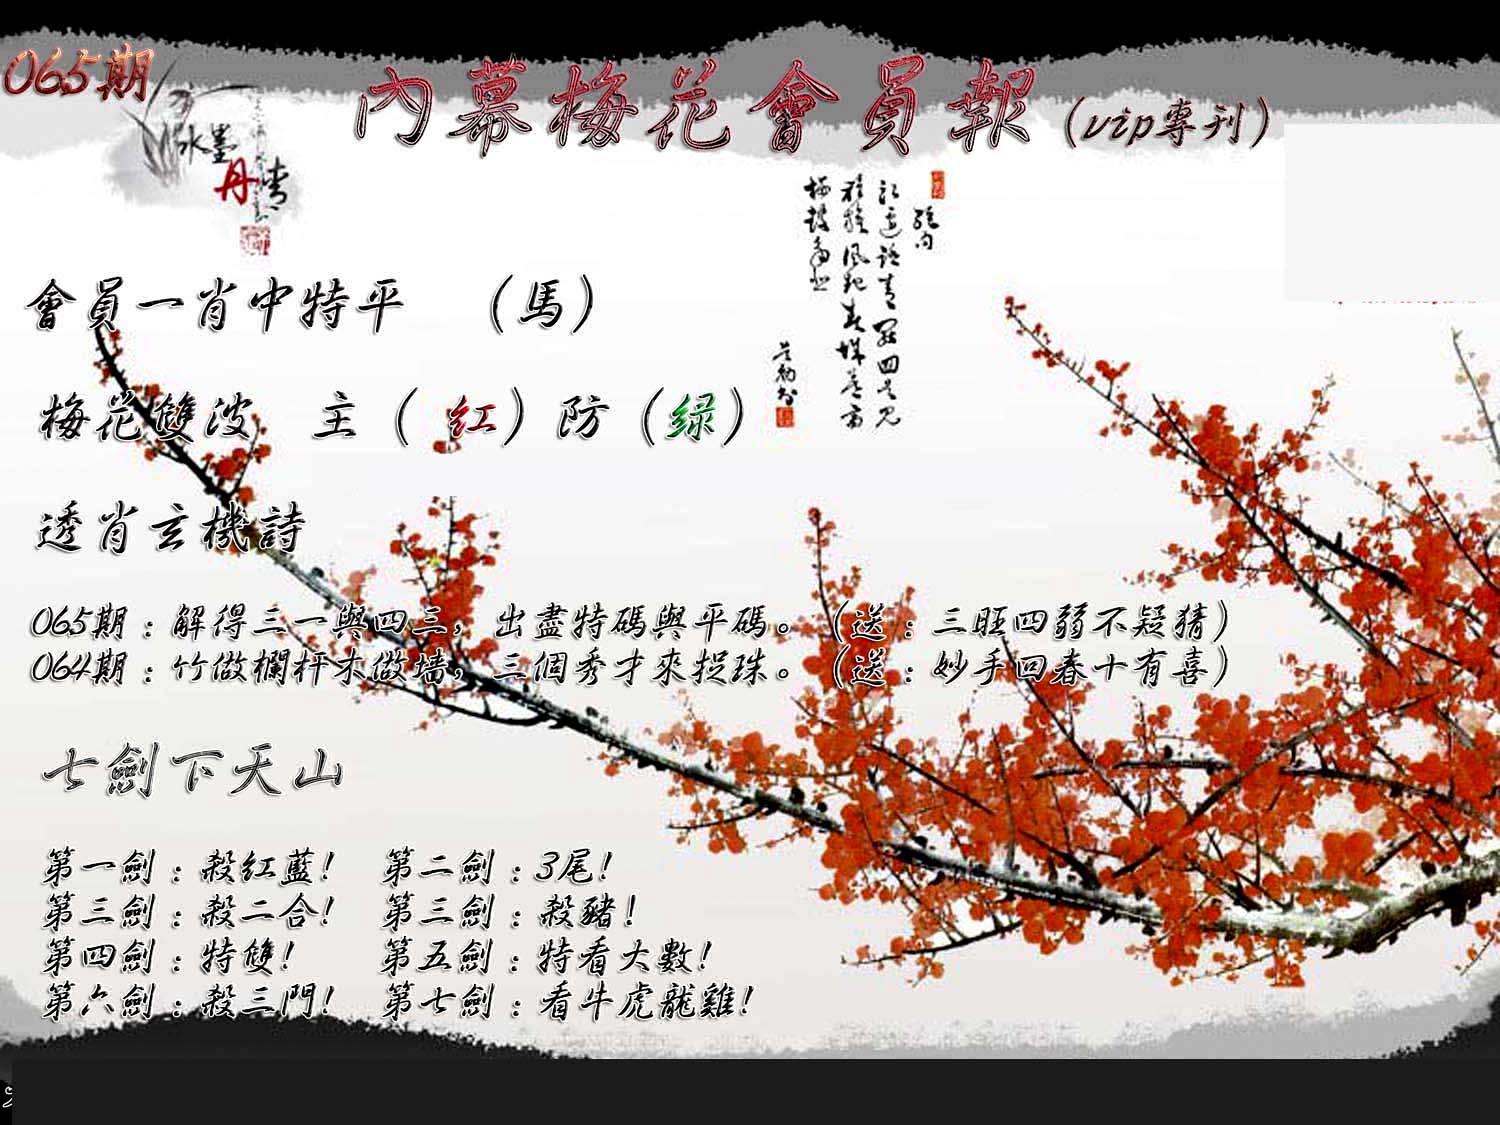 065期
內幕梅花會員報(vip專刊)
水墨
丹青
會員一肖中特平 (馬)
梅花雙波 主(紅)防(绿)
透肖玄機詩
065期:解得三一與四三,出盡特碼與平碼。(送:三旺四弱不疑猜)
064期:竹做欄杆木做墙,三個秀才來捉珠。(送:妙手回春十有喜)
七劍下天山
第一劍:殺紅藍! 第二劍:3尾!
第三劍:殺二合! 第三劍:殺豬!
第四劍:特雙! 第五劍:特看大數!
第六劍:殺三門! 第七劍:看牛虎龍雞!